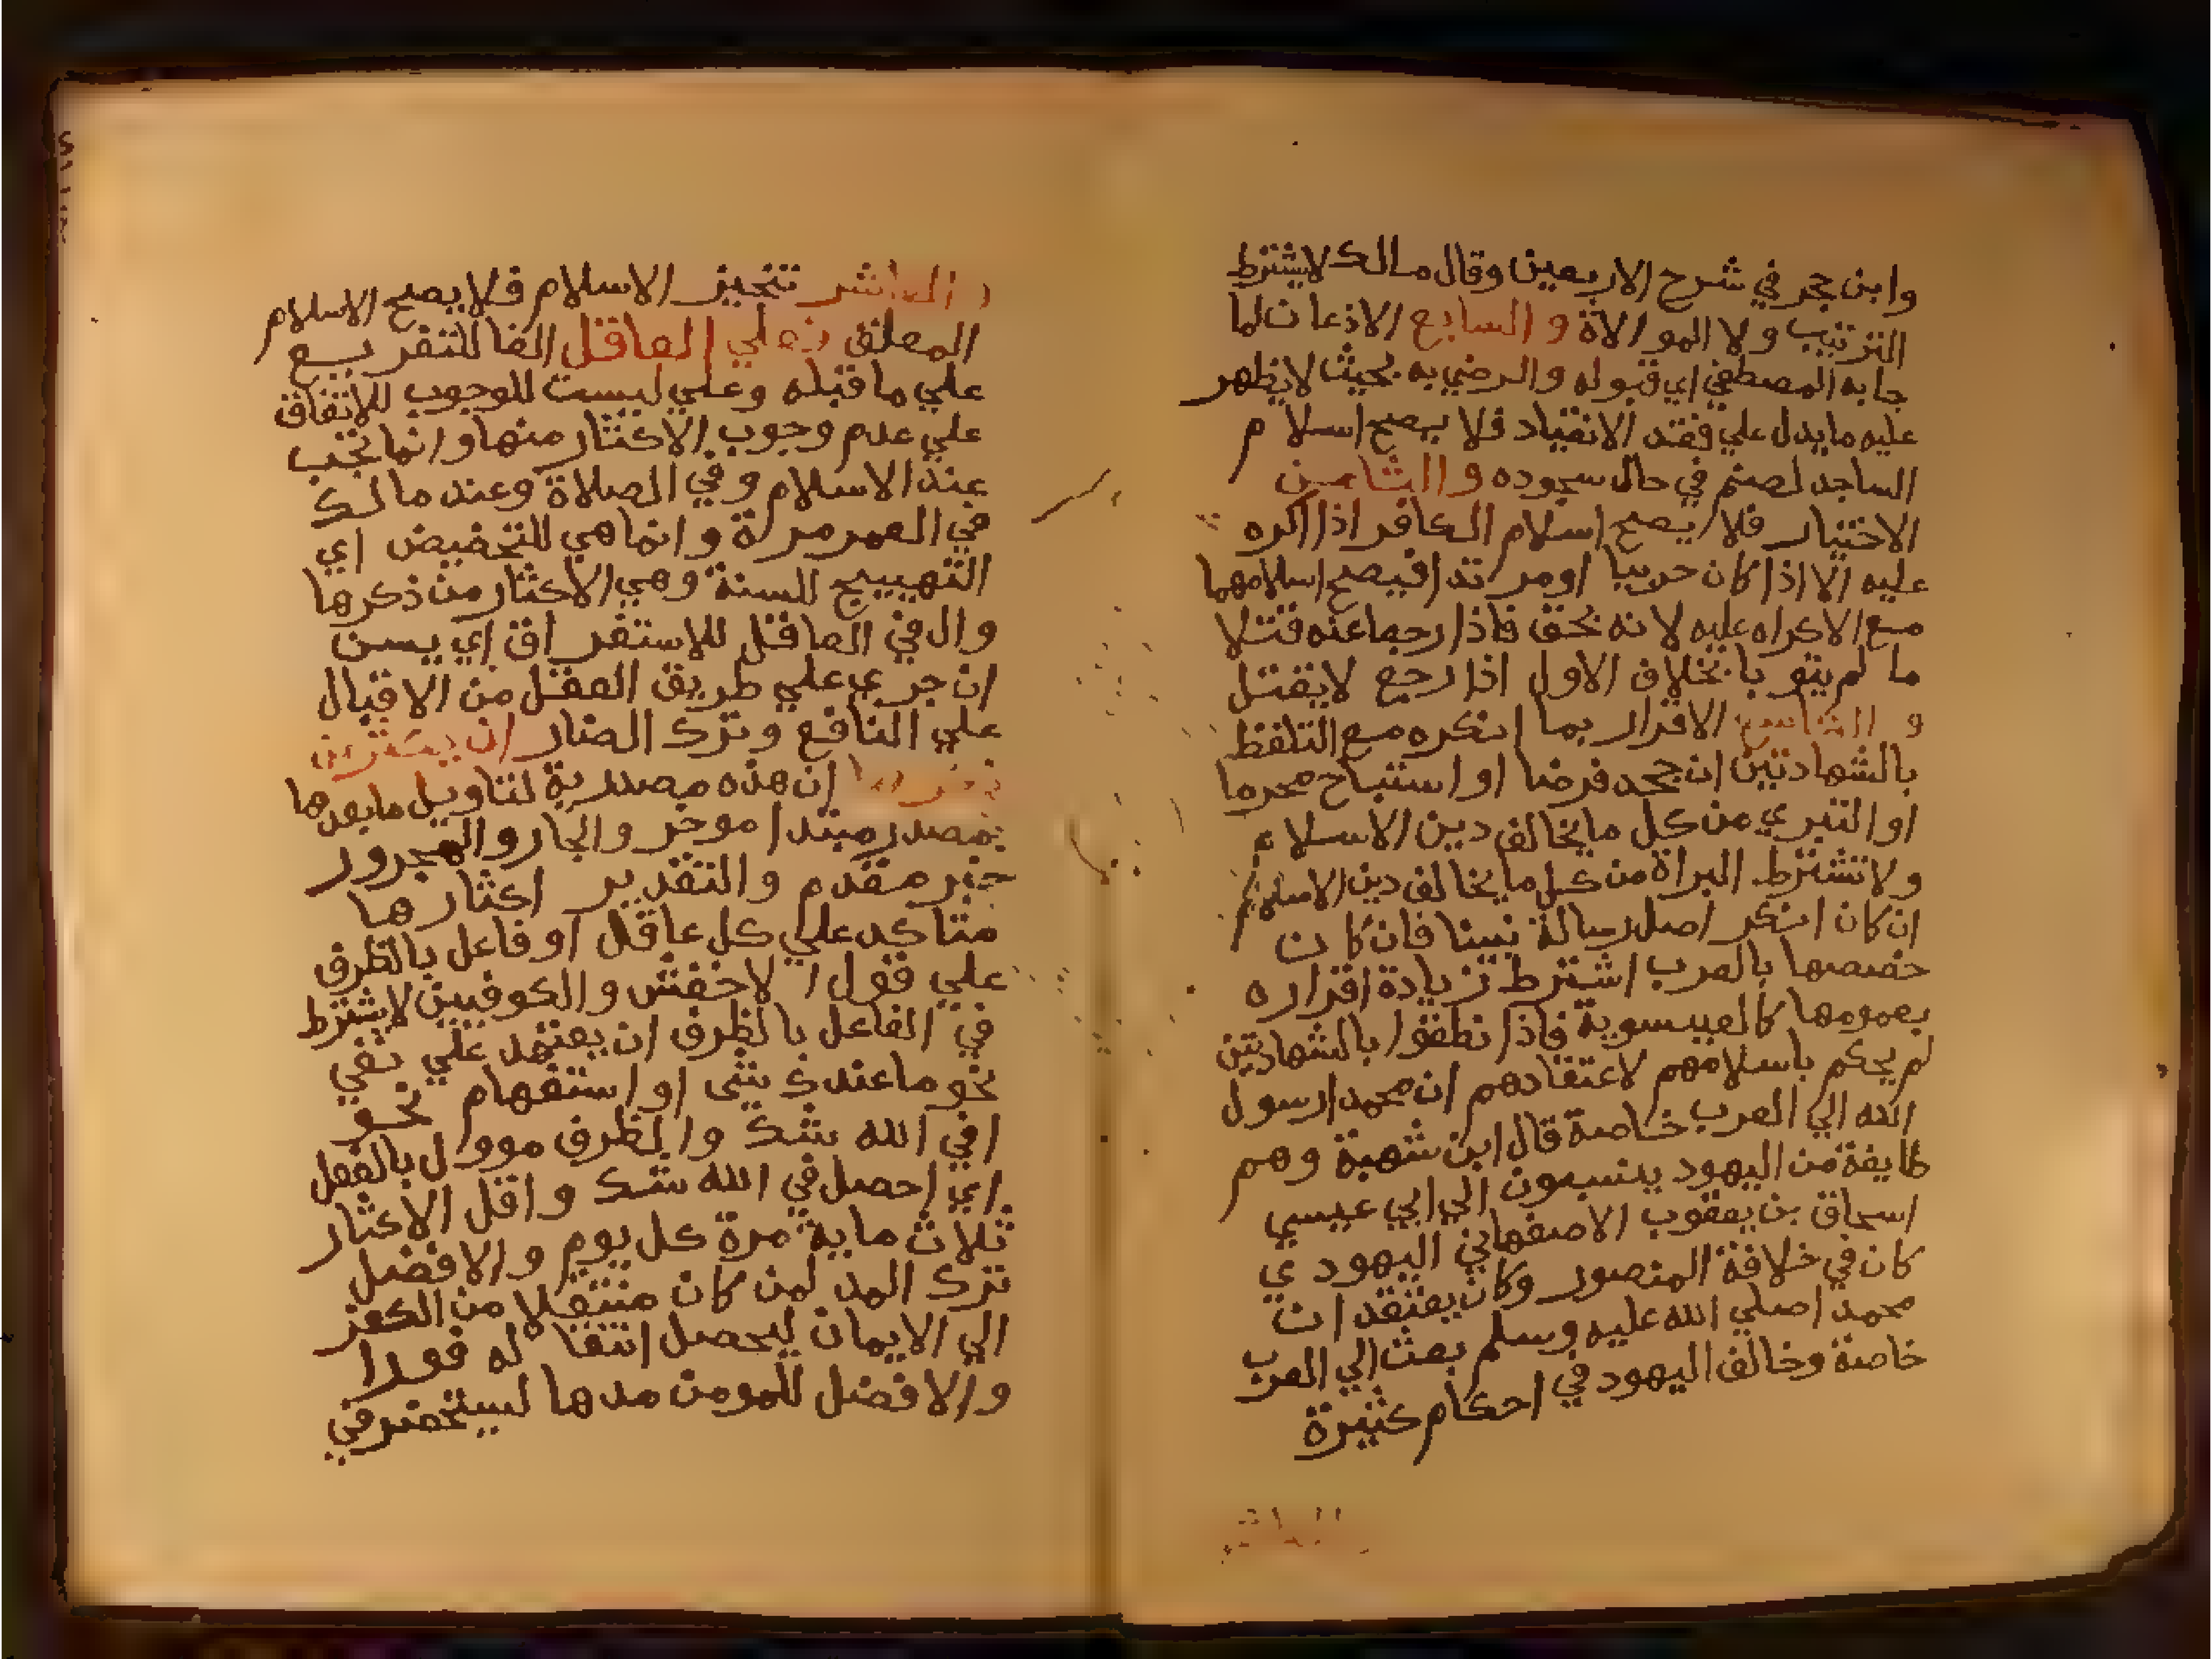 وابن حجر في شرح الاربعين وقال مالك لايشترط
الترتيب ولا الموالاة والسابع الاذعان لما
جابه المصطفي اي قبوله والرضي به بحيث لايظهر
عليه مايدل علي فقد الانقياد فلا يصح اسلام
الساجد لصنم في حال سجوده والثامن
الاختيار فلا يصح اسلام الكافر اذا اكره
عليه الا اذا كان حربيا او مرتدا فيصح اسلامهما
مع الاكراه عليه لانه بحق فاذا رجعا عنه قتلا
ما لم يتوبا بخلاف الاول اذا رجع لايقتل
والتاسع الاقرار بما انكره مع التلفظ
بالشهادتين ان جحد فرضا او استباح محرما
او التبري من كل مايخالف دين الاسلام
ولاتشترط البراة من كل مايخالف دين الاسلام
ان كان انكر اصل رسالة نبينا فان كان
خصصها بالعرب اشترط زيادة اقراره
بعمومها كالعيسوية فاذا نطقوا بالشهادتين
لم يحكم باسلامهم لاعتقادهم ان محمدا رسول
الله الي العرب خاصة قال ابن شهبة وهم
طايفة من اليهود ينسبون الي ابي عيسي
اسحاق بن يعقوب الاصفهاني اليهودي
كان في خلافة المنصور وكان يعتقد ان
محمدا صلي الله عليه وسلم بعث الي العرب
خاصة وخالف اليهود في احكام كثيرة
العاشر
والعاشر تنجيز الاسلام فلا يصح الاسلام
المعلق فعلي العاقل الفا للتفريع
علي ماقبله وعلي ليست للوجوب للاتفاق
علي عدم وجوب الاكثار منها وانما تجب
عند الاسلام وفي الصلاة وعند مالك
في العمر مرة وانما هي للتحضيض اي
التهييج للسنة وهي الاكثار من ذكرها
وال في العاقل للاستغراق اي يسن
ان جري علي طريق العقل من الاقبال
علي النافع وترك الضار ان يكثر من
ذكرها ان هذه مصدرية لتاويل مابعدها
بمصدر مبتدا موخر والجار والمجرور
خبر مقدم والتقدير اكثارها
متاكد علي كل عاقل او فاعل بالظرف
علي قول الاخفش والكوفيين لايشترط
في الفاعل بالظرف ان يعتمد علي نفي
نحو ماعندك شي او استفهام نحو
افي الله شك والظرف موول بالفعل
اي احصل في الله شك واقل الاكثار
ثلاث ماية مرة كل يوم والافضل
ترك المد لمن كان منتقلا من الكفر
الي الايمان ليحصل انتقاله فورا
والافضل للمومن مدها ليستحضر في